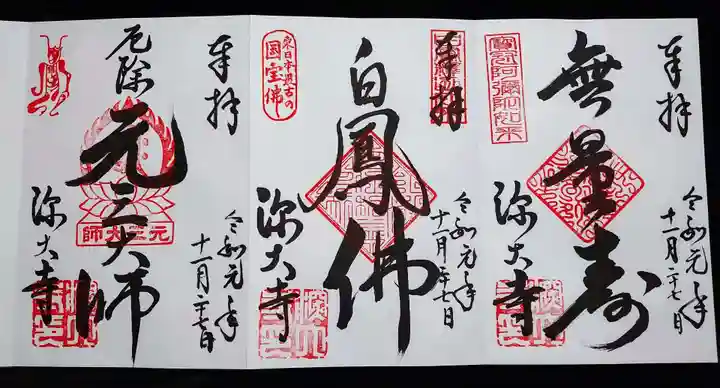 奉拝
令和元年
十一月二十七日
寶冠阿彌陀如来
無量寿
深大寺
奉拝
令和元年
十一月二十七日
白鳳佛
東日本最古の
国宝佛
深大寺
奉拝
令和元年
十一月二十七日
厄除
元三大師
元三大師
深大寺